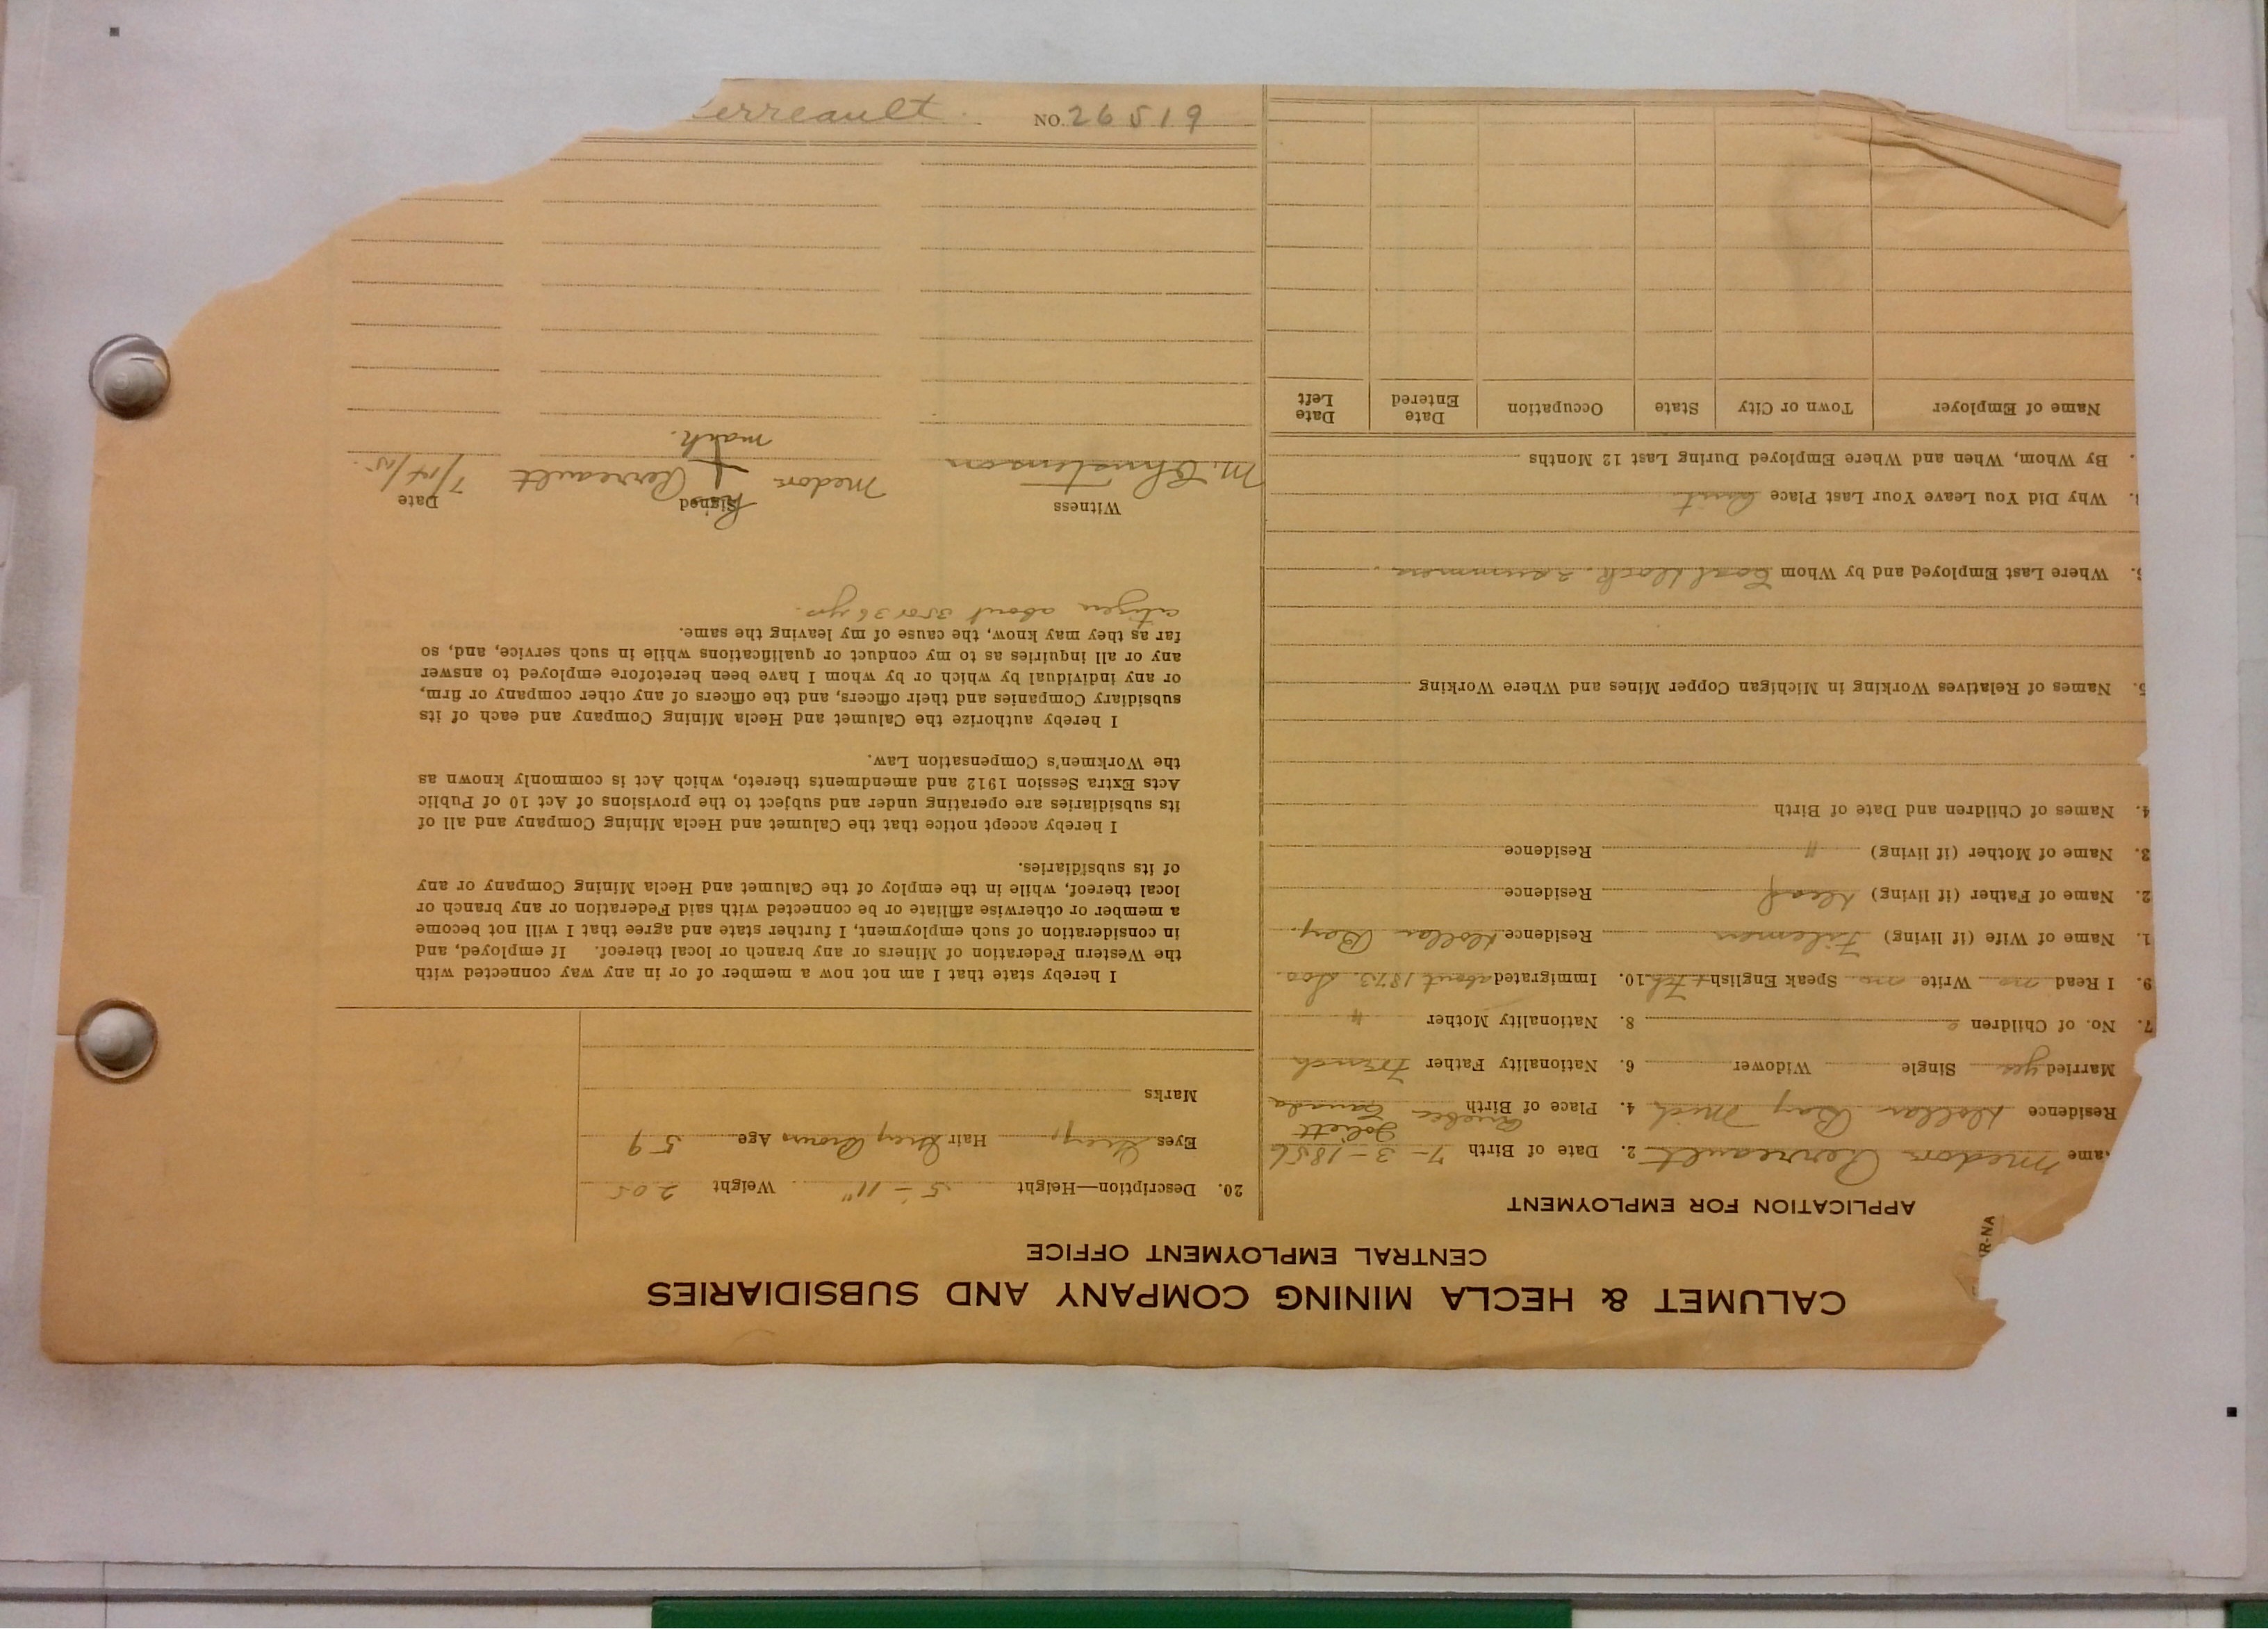 CALUMET & HECLA MINING COMPANY AND SUBSIDIARIES
CENTRAL EMPLOYMENT OFFICE
IR-NA
APPLICATION FOR EMPLOYMENT
ame Medor Perreault 2. Date of Birth 7-3-1856
Joliett
Residence Dollar Bay Mich 4. Place of Birth Quebec Canada
Married yes Single Widower 6. Nationality Father French
7. No. of Children 8. Nationality Mother "
9. I Read no Write no Speak English + Fch. 10. Immigrated about 1873. Soo.
1. Name of Wife (if living) Residence Dollar Bay.
2. Name of Father (if living) dead Residence
3. Name of Mother (if living) " Residence
4. Names of Children and Date of Birth
5. Names of Relatives Working in Michigan Copper Mines and Where Working
6. Where Last Employed and by Whom Coal dock. 2 summers.
Why Did You Leave Your Last Place Quit
. By Whom, When and Where Employed During Last 12 Months
Name of Employer Town or City State Occupation Date Entered Date Left
20. Description—Height 5-11" Weight 205
Eyes Grey, Hair Grey Brown Age 59
Marks
I hereby state that I am not now a member of or in any way connected with
the Western Federation of Miners or any branch or local thereof. If employed, and
in consideration of such employment, I further state and agree that I will not become
a member or otherwise affiliate or be connected with said Federation or any branch or
local thereof, while in the employ of the Calumet and Hecla Mining Company or any
of its subsidiaries.
I hereby accept notice that the Calumet and Hecla Mining Company and all of
its subsidiaries are operating under and subject to the provisions of Act 10 of Public
Acts Extra Session 1912 and amendments thereto, which Act is commonly known as
the Workmen's Compensation Law.
I hereby authorize the Calumet and Hecla Mining Company and each of its
subsidiary Companies and their officers, and the officers of any other company or firm,
or any individual by which or by whom I have been heretofore employed to answer
any or all inquiries as to my conduct or qualifications while in such service, and, so
far as they may know, the cause of my leaving the same.
citizen about 35 or 36 yrs.
Witness Signed Date
his
M. Christenson Medor + Perreault 7/14/15.
mark.
erreault. NO. 26519